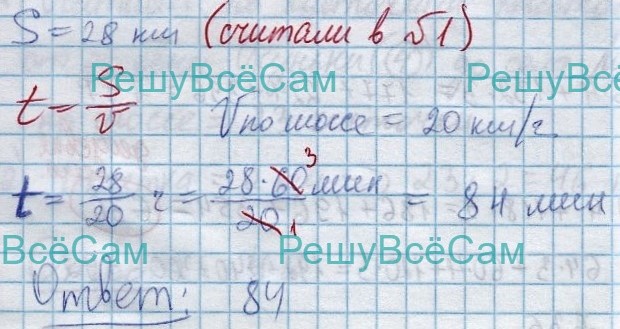 S = 28 км (считали в №1)
РешуВсёСам РешуВсё
t = S/v Vпо шоссе = 20 км/ч
t = 28/20 ч = 28·60 мин/20 = 84 мин
3
1
ВсёСам РешуВсёСам
Ответ: 84